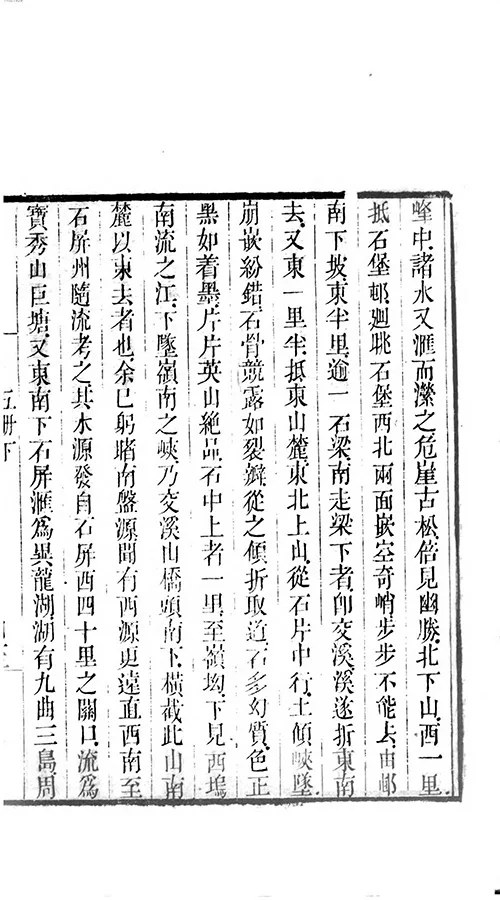 峰中、諸水又滙而瀠之、危崖古松、倍見幽勝、北下山、西一里
抵石堡邨、廻眺石堡西北兩面、嵌空奇峭、步步不能去、由邨
南下坡、東半里、逾一石梁、南走梁下者、卽交溪、溪遂折東南
去、又東一里半、抵東山麓、東北上山、從石片中行、土傾峽墜
崩嵌紛錯、石骨競露、如裂瓣從之傾折取道、石多幻質、色正
黑如着墨、片片英山絶品、石中上者一里、至嶺坳、下見西塢
南流之江、下墜嶺南之峽、乃交溪山橋頭南下、橫截此山南
麓以東去者也、余已躬睹南盤源、聞有西源更遠、直西南至
石屏州、隨流考之、其水源發自石屏西四十里之關口、流爲
寶秀山巨塘、又東南下石屏、滙爲異龍湖、湖有九曲三島、周
五册下